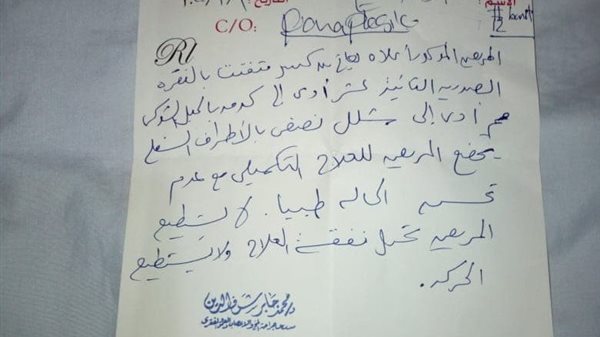 الاسم:
التاريخ:
C/O: Paraplegic
T12 burst
R/
المريض المذكور اعلاه يعاني من كسر متفتت بالفقره
الصدريه الثانيه عشر أدى إلى كدمه بالحبل الشوكي
مما أدى إلى شلل نصفي بالأطراف السفلى
يخضع المريض للعلاج التكميلي مع عدم
تحسن الحاله طبيا. لا يستطيع
المريض تحمل نفقة العلاج ولا يستطيع
الحركه.
د/محمد جابر شرف الدين